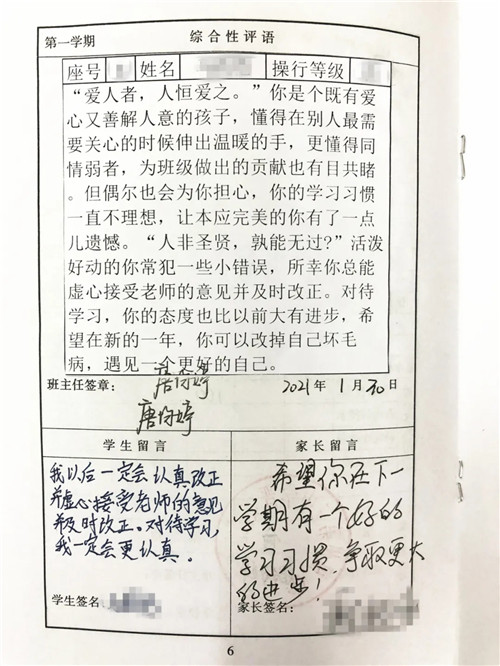 第一学期 综合性评语
座号 姓名 操行等级
“爱人者，人恒爱之。”你是个既有爱
心又善解人意的孩子，懂得在别人最需
要关心的时候伸出温暖的手，更懂得同
情弱者，为班级做出的贡献也有目共睹
。但偶尔也会为你担心，你的学习习惯
一直不理想，让本应完美的你有了一点
儿遗憾。“人非圣贤，孰能无过?”活泼
好动的你常犯一些小错误，所幸你总能
虚心接受老师的意见并及时改正。对待
学习，你的态度也比以前大有进步，希
望在新的一年，你可以改掉自己坏毛
病，遇见一个更好的自己。
班主任签章： 2021年 1月30日
学生留言
我以后一定会认真改正
并虚心接受老师的意见
并及时改正。对待学习，
我一定会更认真。
学生签名：
家长留言
希望你在下一
学期有一个好的
学习习惯，争取更大
的进步！
家长签名：
6